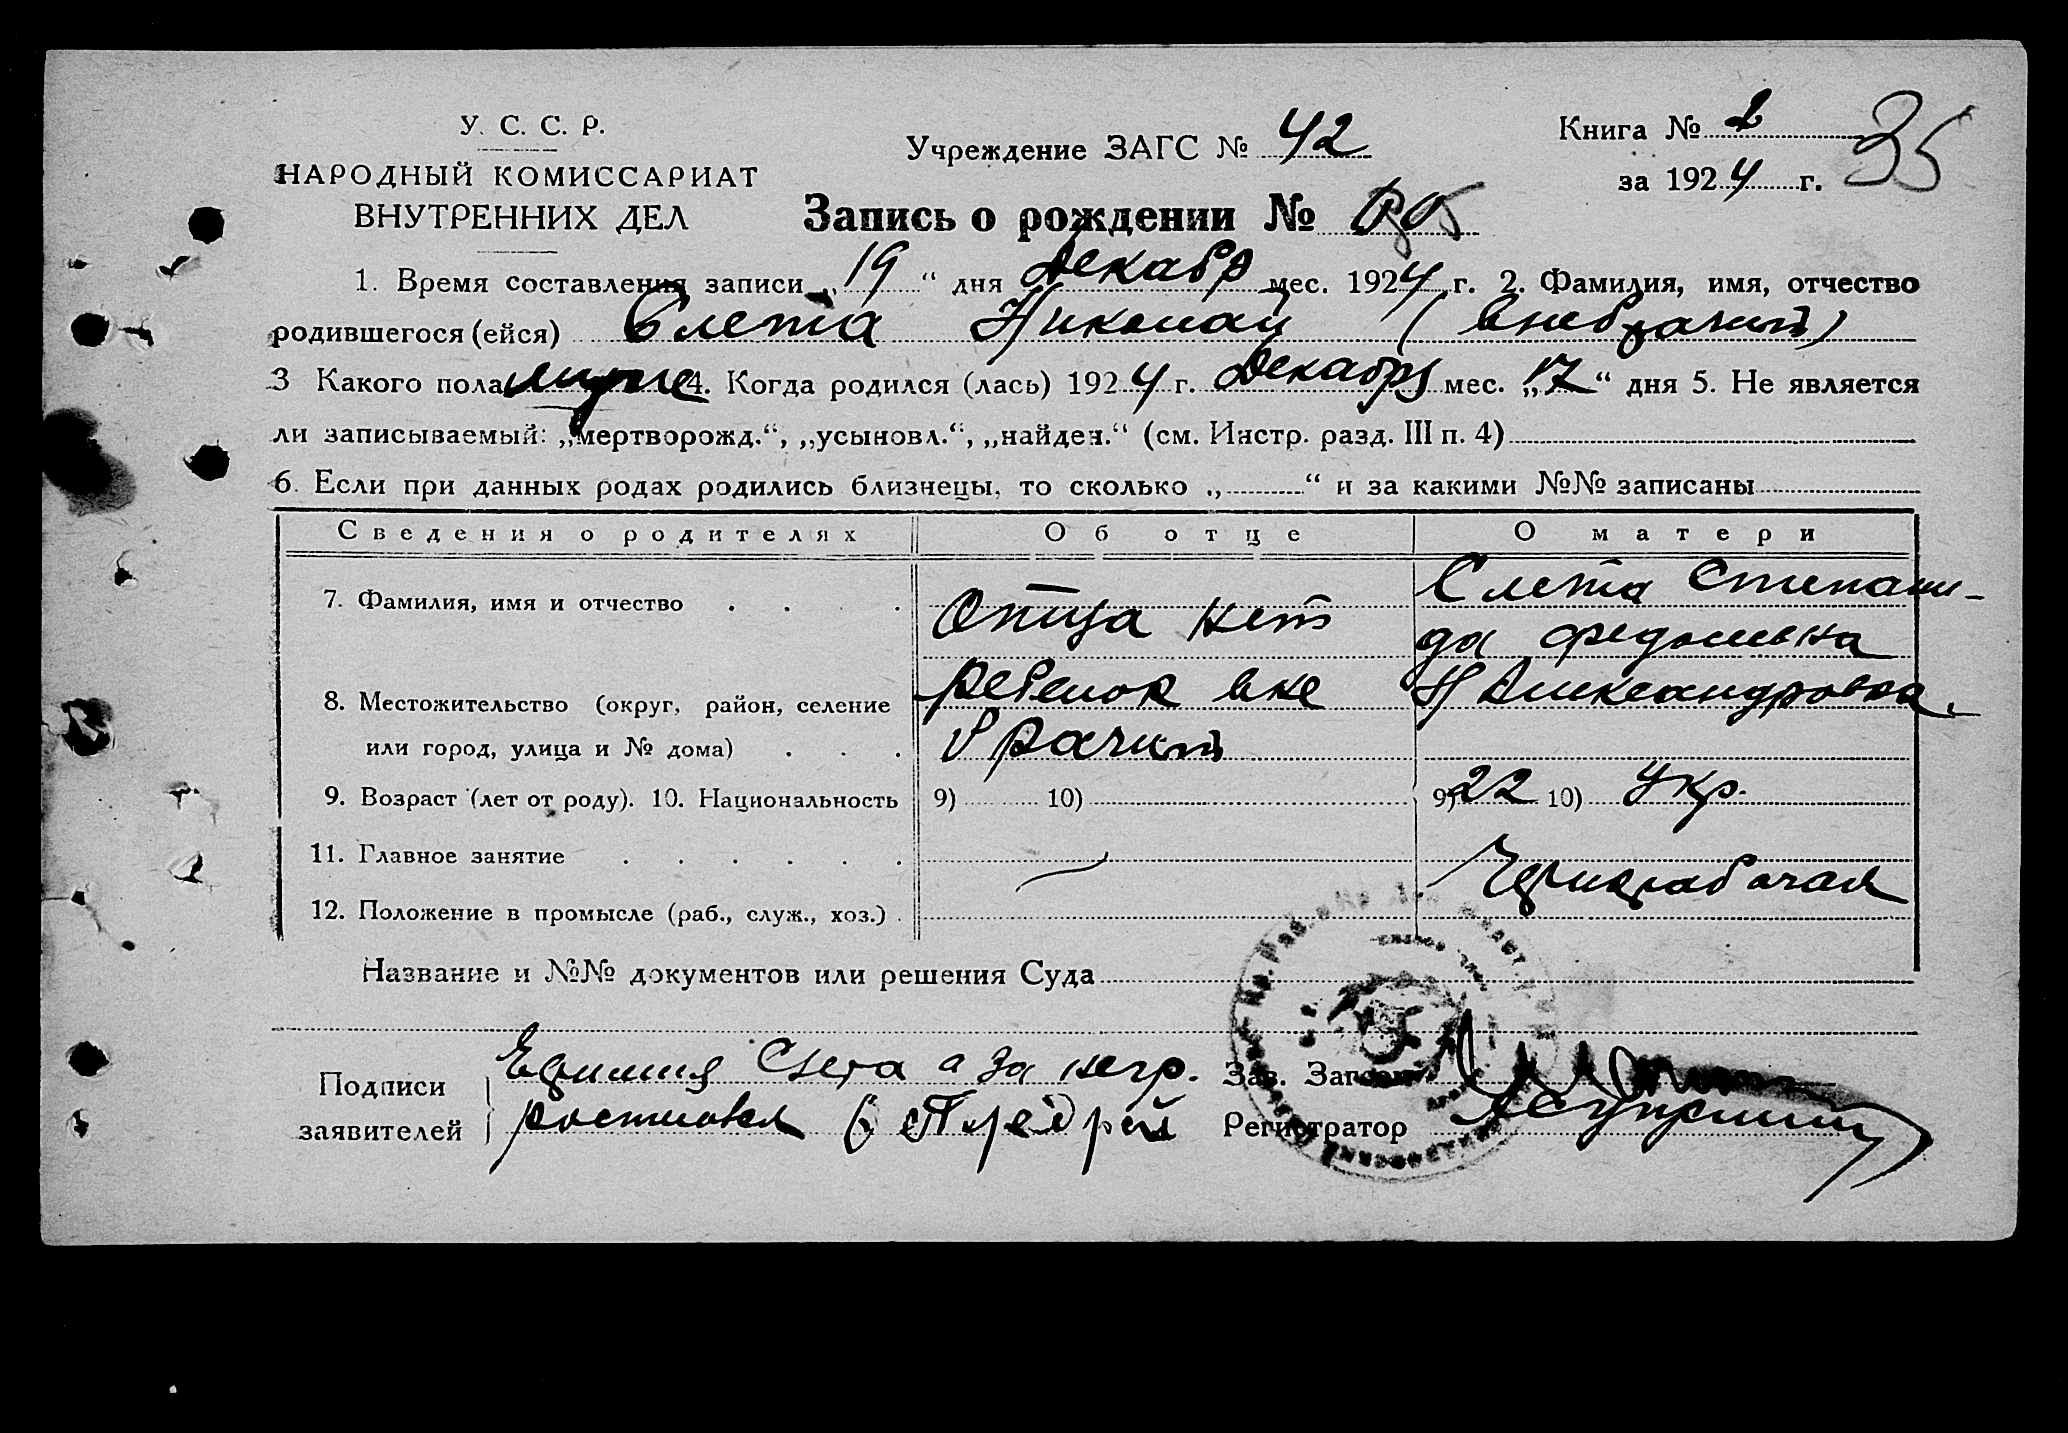 У. С. С. Р.
НАРОДНЫЙ КОМИССАРИАТ
ВНУТРЕННИХ ДЕЛ
Учреждение ЗАГС № 42
Книга № 2
за 1924 г.
35
Запись о рождении №
1. Время составления записи „19“ дня Декабр мес. 1924 г. 2. Фамилия, имя, отчество
родившегося (ейся) Слета Николай (внебрачит)
3 Какого пола муже 4. Когда родился (лась) 1924 г. Декабря мес. „17“ дня 5. Не является
ли записываемый: „мертворожд.“, „усыновл.“, „найден.“ (см. Инстр. разд. III п. 4)
6. Если при данных родах родились близнецы, то сколько „ “ и за какими №№ записаны
Сведения о родителях Об отце О матери
7. Фамилия, имя и отчество Отца нет Слета Степани-
да Федоревна
8. Местожительство (округ, район, селение ребенок вне Н Александровка.
или город, улица и № дома) брачит
9. Возраст (лет от роду). 10. Национальность 9) 10) 9) 22 10) Укр.
11. Главное занятие
Чернорабочая
12. Положение в промысле (раб., служ., хоз.)
Название и №№ документов или решения Суда
Подписи Ефимия Слета а за негр.
заявителей
Зав. Загсом
Регистратор